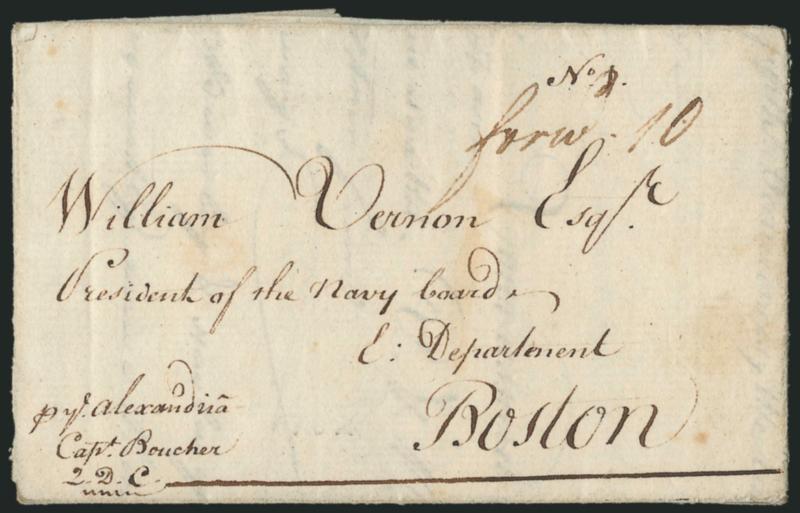 No. 1.
forw. 10
William Vernon Esqr.
President of the Navy board
E: Department
Boston
p yr. Alexandria
Capt. Boucher
2. D. C.